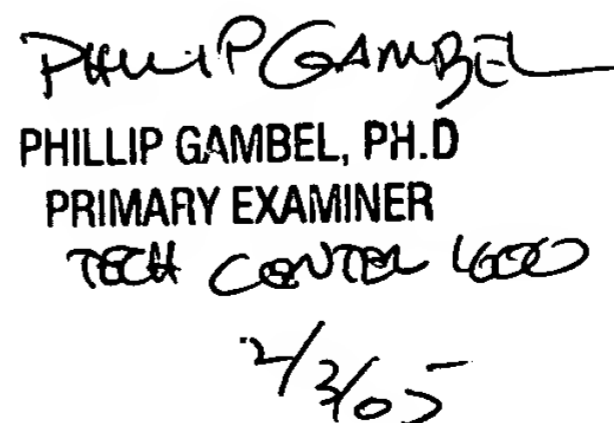 PHILLIP GAMBEL
PHILLIP GAMBEL, PH.D
PRIMARY EXAMINER
TECH CENTER 1600
2/3/05